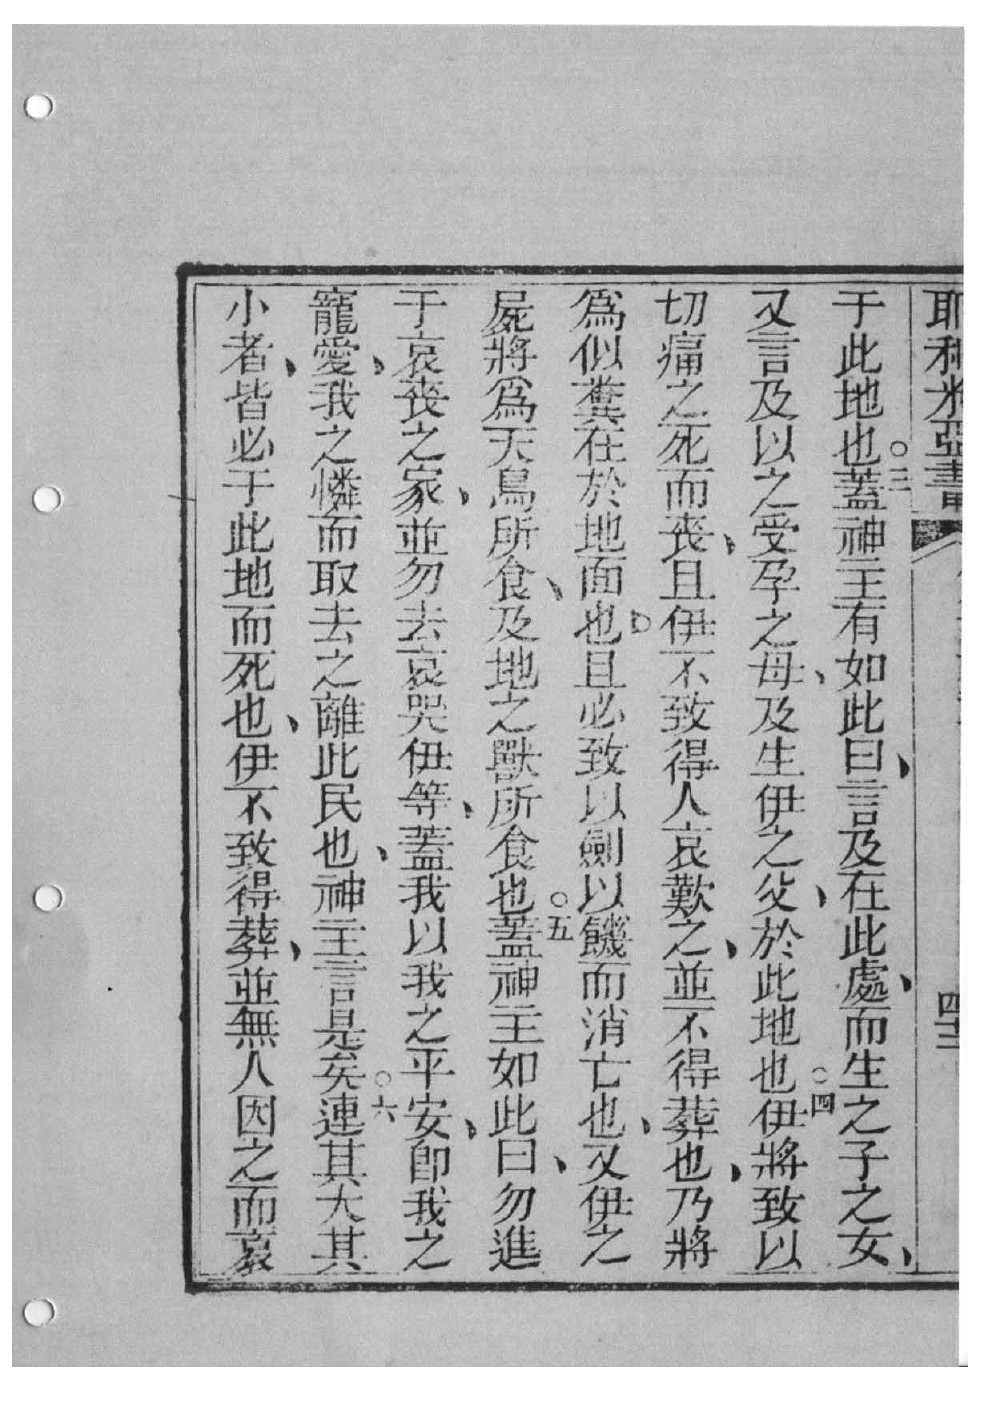 耶利米亞書
四十二
于此地也○三蓋神主有如此曰、言及在此處、而生之子之女、
又言及以之受孕之母、及生伊之父、於此地也○四伊將致以
切痛之死而喪、且伊不致得人哀歎之、並不得葬也、乃將
爲似糞在於地面也○且必致以劍以饑而消亡也、又伊之
屍將爲天鳥所食、及地之獸所食也○五蓋神主如此曰、勿進
于哀喪之家、並勿去哀哭伊等、蓋我以我之平安、卽我之
寵愛、我之憐而取去之離此民也、神主言是矣○六連其大其
小者、皆必于此地而死也、伊不致得葬、並無人因之而哀